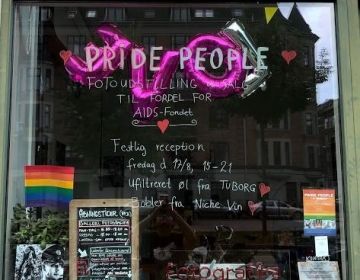 PRIDE PEOPLE
FOTOUDSTILLING & SALG
TIL FORDEL FOR
AIDS-Fondet
Festlig reception
fredag d 17/8, 15-21
Ufiltreret øl fra TUBORG
Bobler fra Niche Vin
ÅBNINGSTIDER
PRIDE PEOPLE
fotografi